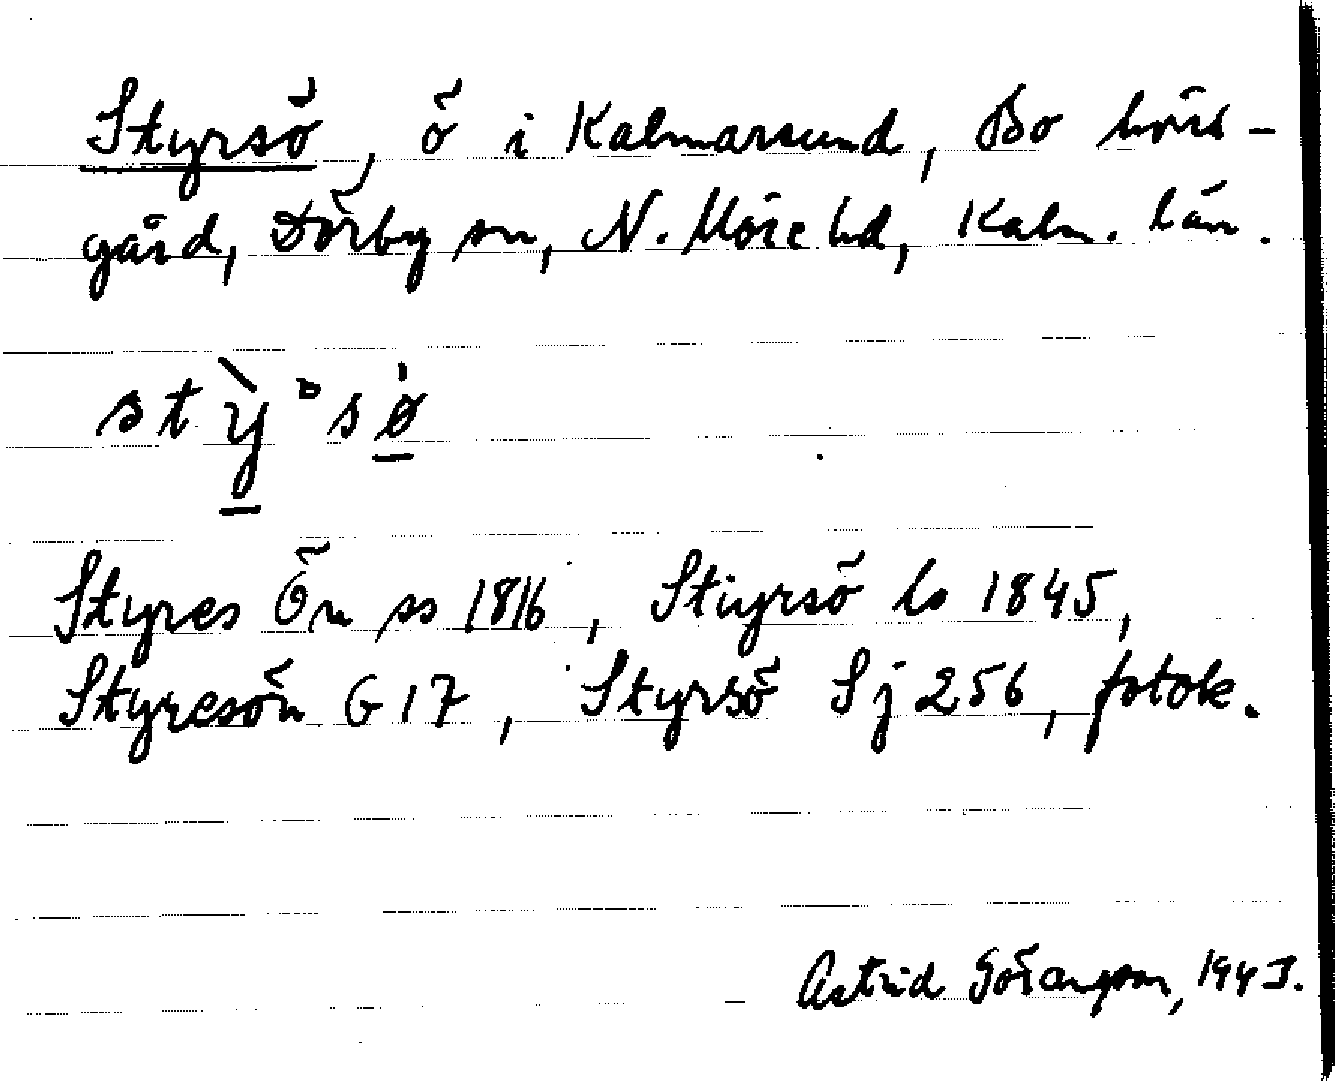 Styrsö, ö i Kalmarsund, Bo herr-
gård, Dörby sn, N. Möre hd, Kalm. län.
stỳ°sø̇
Styres Ön ss 1816, Stiyrsö ls 1845,
Styresön G 17, Styrsö Sj 256, fotok.
Astrid Göransson, 1943.